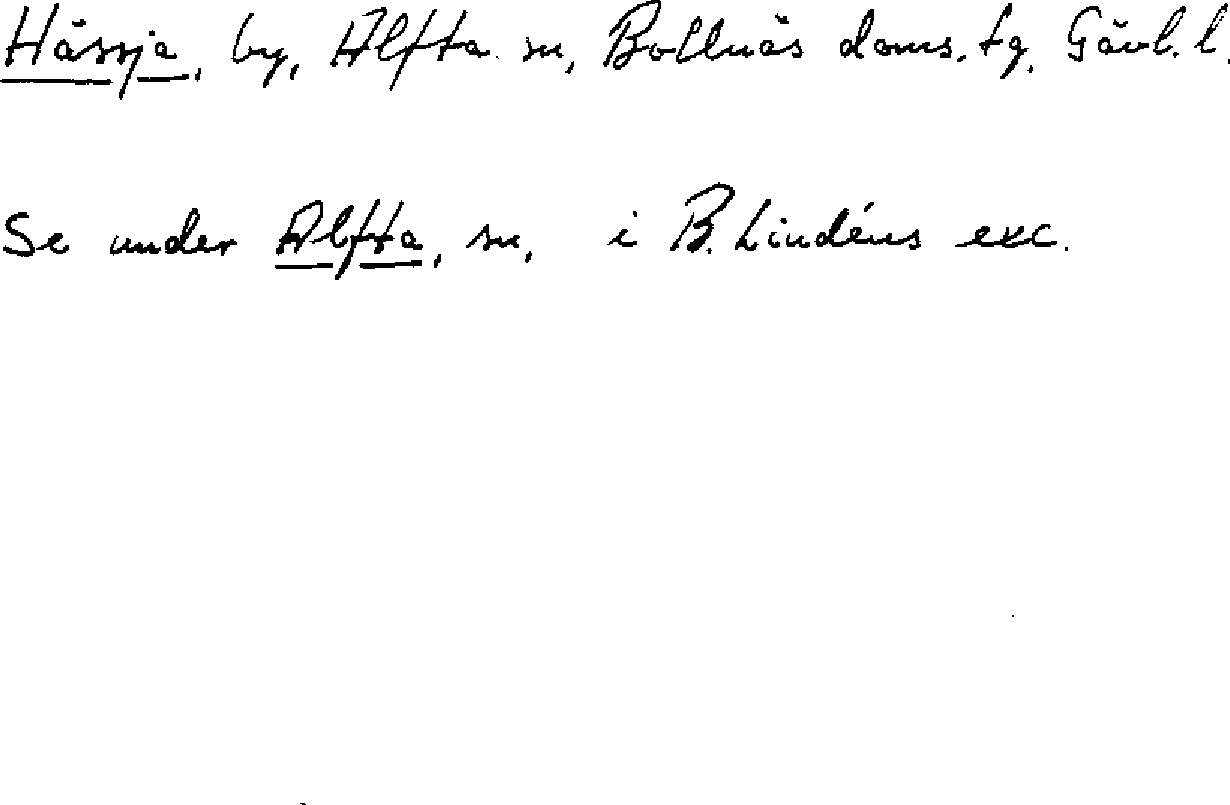 Hässja, by, Alfta sn, Bollnäs doms. tg. Gävl. l.
Se under Alfta, sn, i B. Lindéns exc.